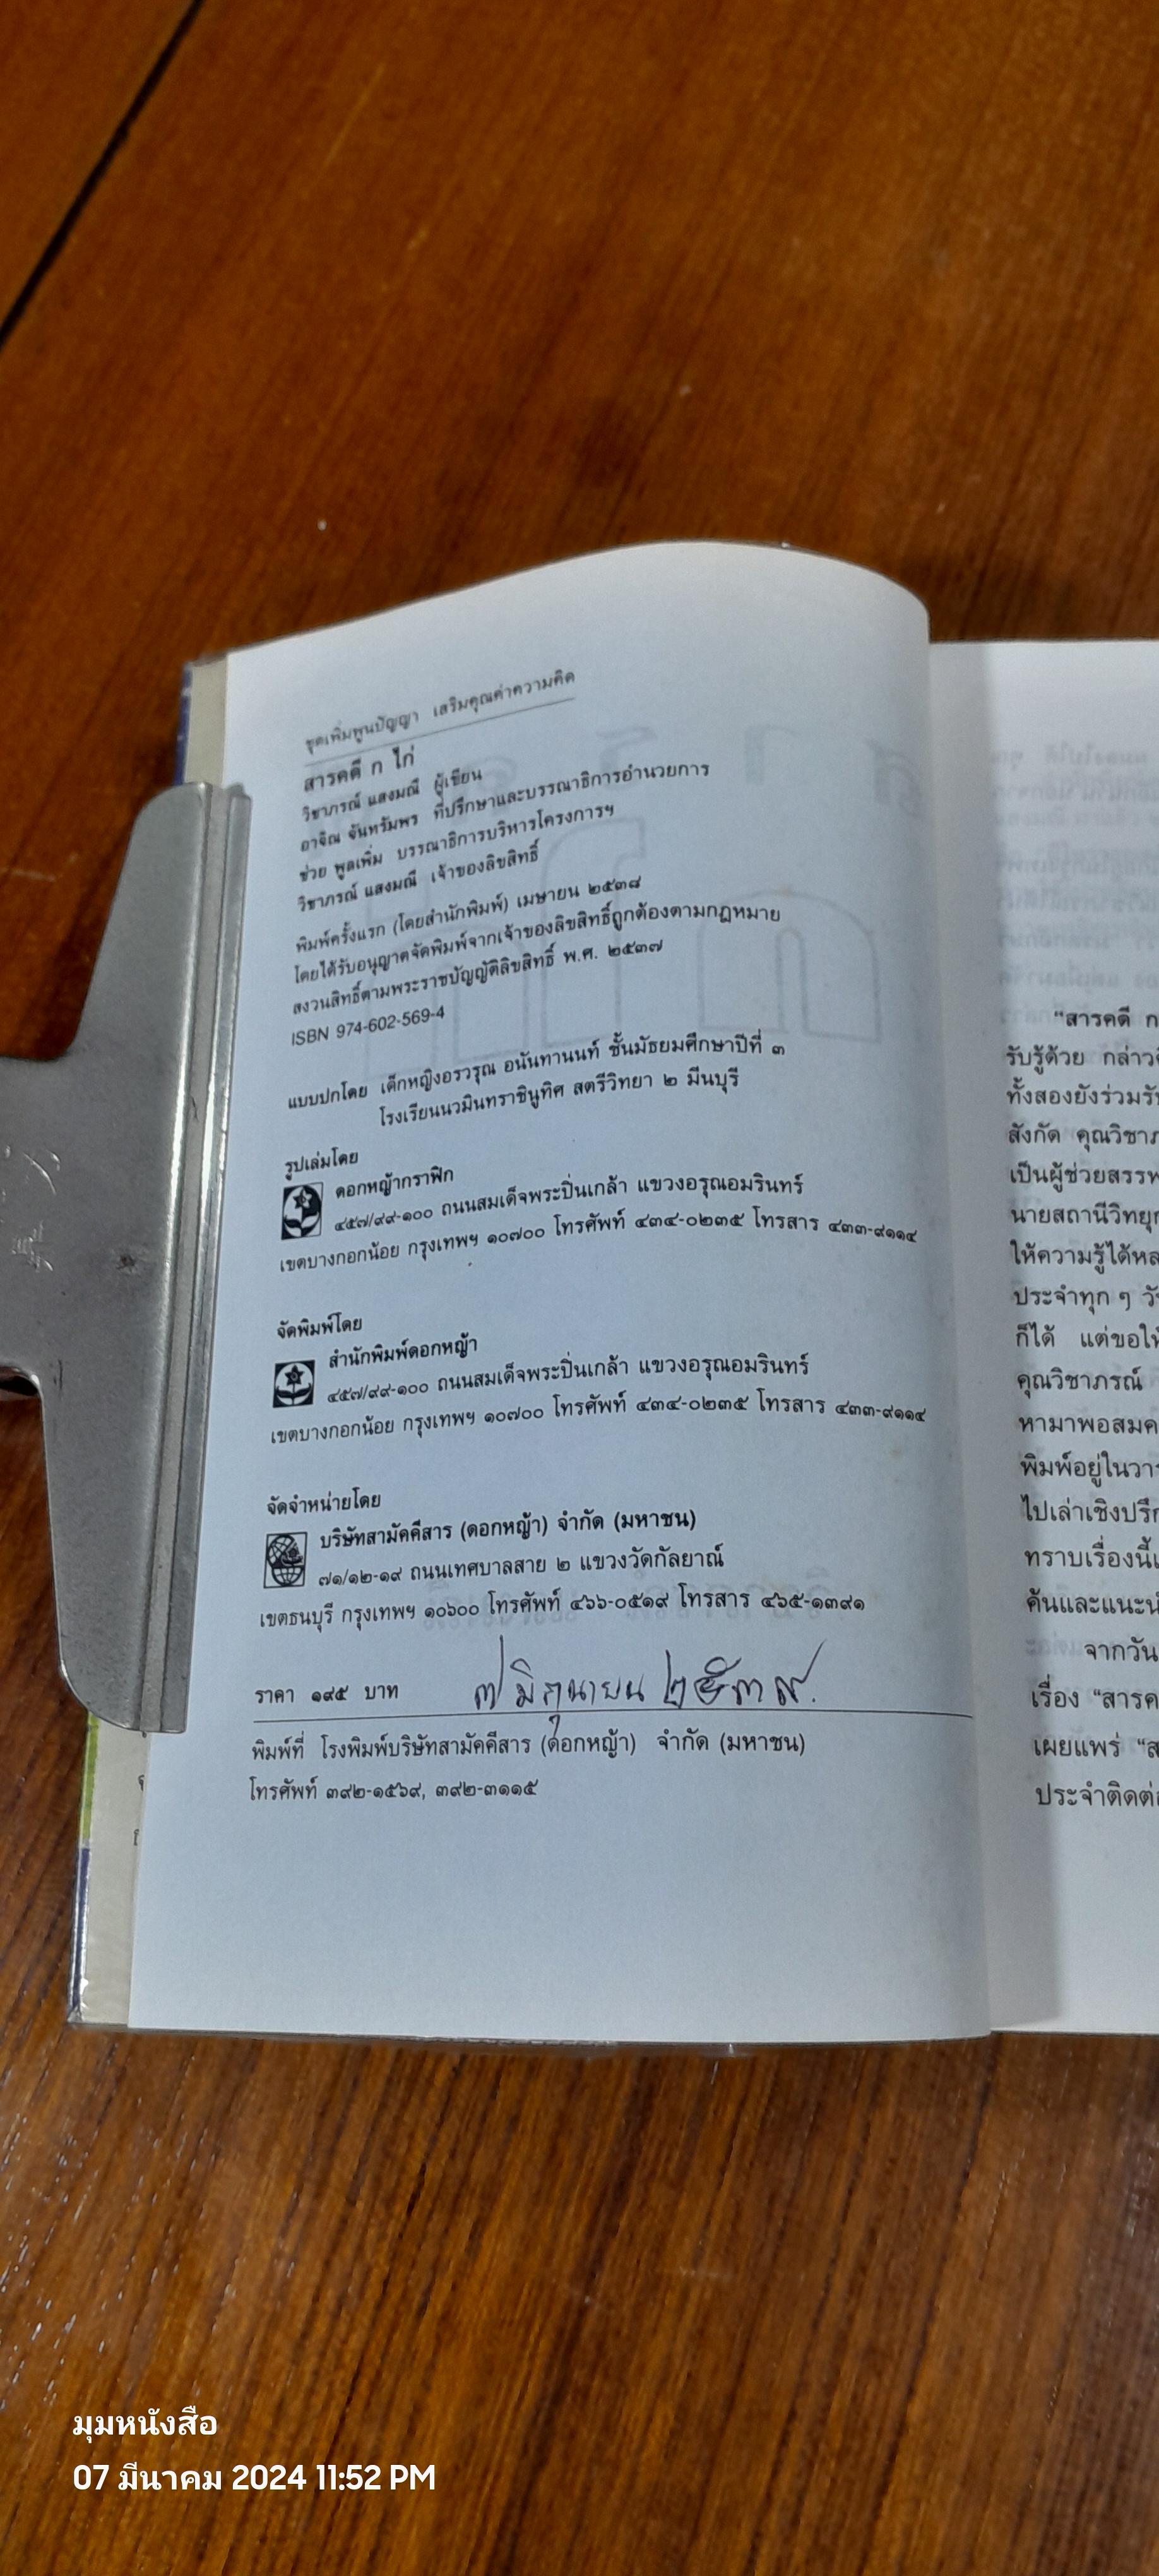 ชุดเพิ่มพูนปัญญา เสริมคุณค่าความคิด
สารคดี ก ไก่
วิชาภรณ์ แสงมณี ผู้เขียน
อาจิณ จันทรัมพร ที่ปรึกษาและบรรณาธิการอำนวยการ
ช่วย พูลเพิ่ม บรรณาธิการบริหารโครงการฯ
วิชาภรณ์ แสงมณี เจ้าของลิขสิทธิ์
พิมพ์ครั้งแรก (โดยสำนักพิมพ์) เมษายน ๒๕๓๘
โดยได้รับอนุญาตจัดพิมพ์จากเจ้าของลิขสิทธิ์ถูกต้องตามกฎหมาย
สงวนสิทธิ์ตามพระราชบัญญัติลิขสิทธิ์ พ.ศ. ๒๕๓๗
ISBN 974-602-569-4
แบบปกโดย เด็กหญิงอรวรุณ อนันทานนท์ ชั้นมัธยมศึกษาปีที่ ๓
โรงเรียนนวมินทราชินูทิศ สตรีวิทยา ๒ มีนบุรี
รูปเล่มโดย
ดอกหญ้ากราฟิก
๔๕๗/๙๙-๑๐๐ ถนนสมเด็จพระปิ่นเกล้า แขวงอรุณอมรินทร์
เขตบางกอกน้อย กรุงเทพฯ ๑๐๗๐๐ โทรศัพท์ ๔๓๔-๐๒๓๕ โทรสาร ๔๓๓-๙๑๑๔
จัดพิมพ์โดย
สำนักพิมพ์ดอกหญ้า
๔๕๗/๙๙-๑๐๐ ถนนสมเด็จพระปิ่นเกล้า แขวงอรุณอมรินทร์
เขตบางกอกน้อย กรุงเทพฯ ๑๐๗๐๐ โทรศัพท์ ๔๓๔-๐๒๓๕ โทรสาร ๔๓๓-๙๑๑๔
จัดจำหน่ายโดย
บริษัทสามัคคีสาร (ดอกหญ้า) จำกัด (มหาชน)
๗๑/๑๒-๑๙ ถนนเทศบาลสาย ๒ แขวงวัดกัลยาณ์
เขตธนบุรี กรุงเทพฯ ๑๐๖๐๐ โทรศัพท์ ๔๖๖-๐๕๑๙ โทรสาร ๔๖๕-๑๓๙๑
ราคา ๑๙๕ บาท ๗ มิถุนายน ๒๕๓๙.
พิมพ์ที่ โรงพิมพ์บริษัทสามัคคีสาร (ดอกหญ้า) จำกัด (มหาชน)
โทรศัพท์ ๓๙๒-๑๕๖๙, ๓๙๒-๓๑๑๕
"สารคดี ก
รับรู้ด้วย กล่าว
ทั้งสองยังร่วมรับ
สังกัด คุณวิชาภ
เป็นผู้ช่วยสรรพ
นายสถานีวิทยุ
ให้ความรู้ได้หล
ประจำทุก ๆ วั
ก็ได้ แต่ขอให้
คุณวิชาภรณ์
หามาพอสมค
พิมพ์อยู่ในวา
ไปเล่าเชิงปรึก
ทราบเรื่องนี้
ค้นและแนะน
จากวัน
เรื่อง "สารค
เผยแพร่ "ส
ประจำติดต่
มุมหนังสือ
07 มีนาคม 2024 11:52 PM